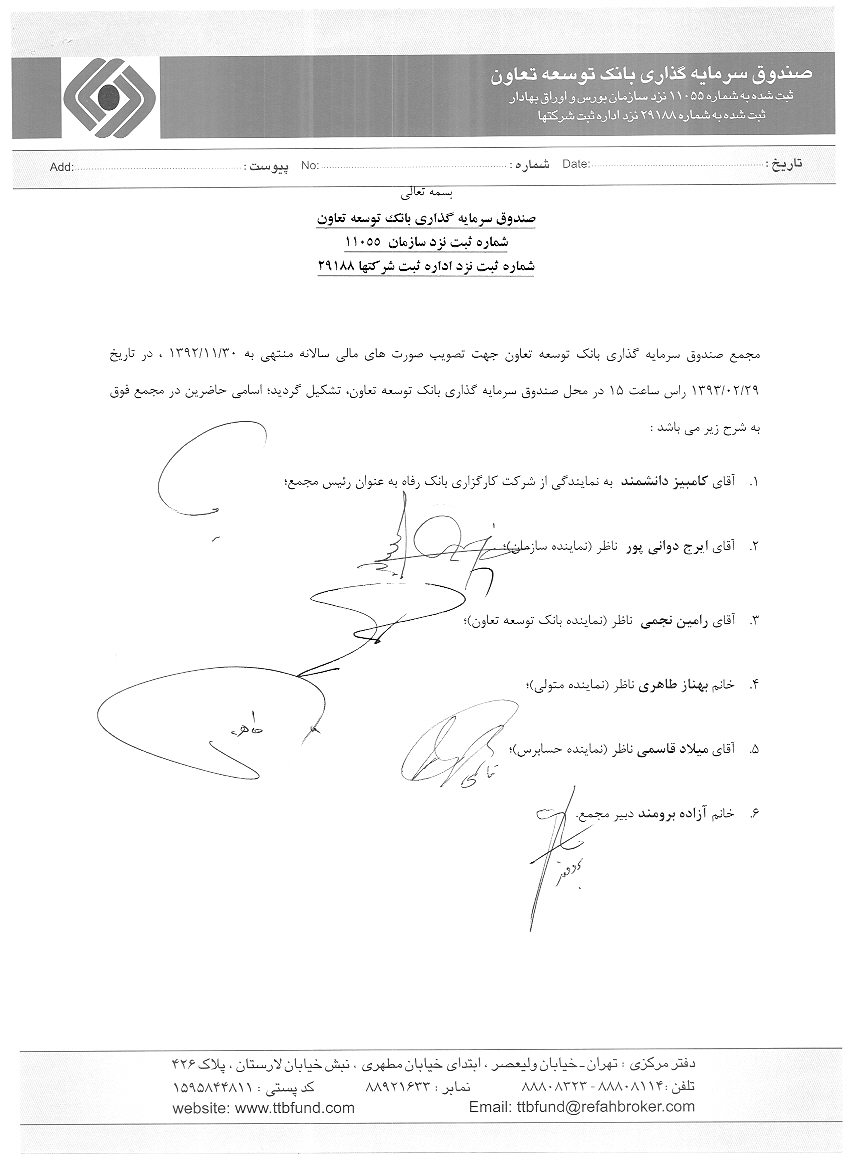 صندوق سرمایه گذاری بانک توسعه تعاون
ثبت شده به شماره ۱۱۰۵۵ نزد سازمان بورس و اوراق بهادار
ثبت شده به شماره ۲۹۱۸۸ نزد اداره ثبت شرکتها
تاریخ : Date: شماره : No: پیوست : Add:
بسمه تعالی
صندوق سرمایه گذاری بانک توسعه تعاون
شماره ثبت نزد سازمان ۱۱۰۵۵
شماره ثبت نزد اداره ثبت شرکتها ۲۹۱۸۸
مجمع صندوق سرمایه گذاری بانک توسعه تعاون جهت تصویب صورت های مالی سالانه منتهی به ۱۳۹۲/۱۱/۳۰ ، در تاریخ
۱۳۹۳/۰۲/۲۹ راس ساعت ۱۵ در محل صندوق سرمایه گذاری بانک توسعه تعاون، تشکیل گردید؛ اسامی حاضرین در مجمع فوق
به شرح زیر می باشد :
۱. آقای کامبیز دانشمند به نمایندگی از شرکت کارگزاری بانک رفاه به عنوان رئیس مجمع؛
۲. آقای ایرج دوانی پور ناظر (نماینده سازمان)؛
۳. آقای رامین نجمی ناظر (نماینده بانک توسعه تعاون)؛
۴. خانم بهناز طاهری ناظر (نماینده متولی)؛
طاهری
۵. آقای میلاد قاسمی ناظر (نماینده حسابرس)؛
۶. خانم آزاده برومند دبیر مجمع.
دفتر مرکزی : تهران ـ خیابان ولیعصر ، ابتدای خیابان مطهری ، نبش خیابان لارستان ، پلاک ۴۲۶
تلفن : ۸۸۸۰۸۱۱۴ - ۸۸۸۰۸۳۲۳ نمابر : ۸۸۹۲۱۶۳۳ کد پستی : ۱۵۹۵۸۴۴۸۱۱
website: www.ttbfund.com Email: ttbfund@refahbroker.com